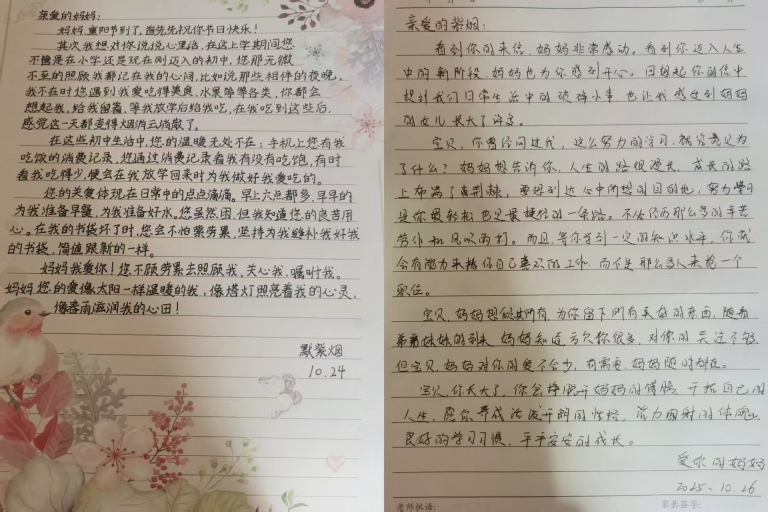 亲爱的妈妈:
妈妈,重阳节到了,首先先祝你节日快乐!
其次我想对你说说心里话,在这上学期间您
不管是在小学还是现在刚迈入的初中,您那无微
不至的照顾我都记在我的心间,比如说那些相伴的夜晚,
我不在时您遇到我爱吃得美食、水果等等各类,你都会
想起我,给我留着,等我放学后给我吃,在我吃到这些后,
感觉这一天都变得烟消云消散了。
在这些初中生活中,您的温暖无处不在:手机上您有我
吃饭的消费记录,您通过消费记录看我有没有吃饱,有时
看我吃得少,便会在我放学回来时为我做好我爱吃的。
您的关爱体现在日常中的点点滴滴。早上六点都多,早早的
为我准备早餐,为我准备好水。您虽然困,但我知道您的良苦用
心。在我的书袋坏了时,您会不怕劳累,坚持为我缝补我好我
的书袋,简值跟新的一样。
妈妈我爱你!您不顾劳累去照顾我,关心我,嘱咐我。
妈妈您的爱像太阳一样温暖的我,像塔灯照亮着我的心灵,
像春雨滋润我的心田!
默紫烟
10.24
亲爱的紫烟:
看到你的来信,妈妈非常感动。看到你迈入人生
中的新阶段,妈妈也为你感到开心。回想起你的信中
提到我们日常生活中的琐碎小事,也让我感受到妈妈
的女儿长大了许多。
宝贝,你曾经问过我,这么努力的学习,就究竟是为
了什么?妈妈想告诉你,人生的路很漫长,成长的路
上布满了荆棘,要想到达心中所想的目的地,努力学习
是你最轻松也是最捷径的一条路。不必经历那么多的辛苦
劳作和风吹雨打。而且,等你学到一定的知识水平,你就
会有能力来挑你自己喜欢的工作,而不是那么多人来抢一个
职位。
宝贝,妈妈想倾其所有,为你留下所有美好的东西,随着
弟弟妹妹的到来,妈妈知道亏欠你很多,对你的关注不够,
但宝贝,妈妈对你的爱不会少,有需要,妈妈随时都在。
宝贝,你长大了,你会挣脱开妈妈的怀抱,开拓自己的
人生,愿你养成活泼开朗的性格,活力四射的体魄,
良好的学习习惯,平平安安的成长。
爱你的妈妈
2025.10.26
老师批语:
家长签字: